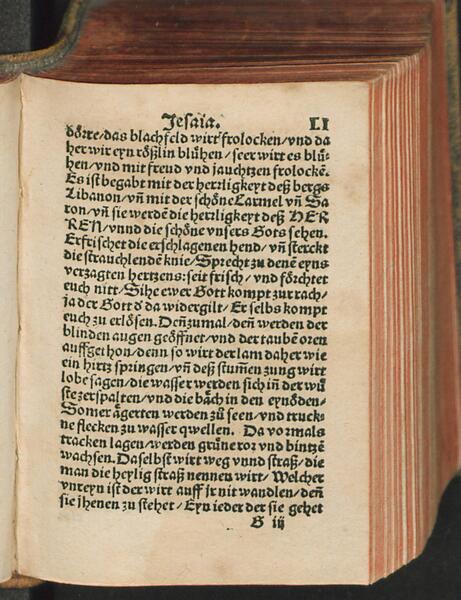 Jesaia. LI
dörre/das blachfeld wirt frolocken/vnd da
her wie eyn rößlin blühen/seer wirt es blü-
hen/vnd mit freud vnd jauchtzen frolockē.
Es ist begabt mit der herrligkeyt deß bergs
Libanon/vñ mit der schöne Carmel vñ Sa
ron/vñ sie werdē die herzligkeyt deß HER
REN/vnnd die schöne vnsers Gots sehen.
Erfrischet die erschlagenen hend/vñ sterckt
die strauchlendē knie/Sprecht zu denē eyns
verzagten hertzens: seit frisch/vnd förchtet
euch nitt/Sihe ewer Gott kompt zur rach/
ja der Gott d̄ da widergilt/Er selbs kompt
euch zu erlösen. Deñzumal/deñ werden der
blinden augen geöffnet/vnd der taubē oren
auffgethon/denn so wirt der lam daher wie
ein hirtz springen/vñ deß stum̄en zung wirt
lobe sagen/die wasser werden sich iñ der wü
ste zerspalten/vnd die bäch in den eynöden/
Somer ägerten werden zů seen/vnd truck-
ne flecken zu wasser quellen. Da vormals
tracken lagen/werden grüne ror vnd bintzē
wachsen. Daselbst wirt weg vnnd straß/die
man die heylig straß nennen wirt/Welcher
vnreyn ist der wirt auff jr nit wandlen/deñ
sie jhenen zu stehet/Eyn ieder der sie gehet
G iij